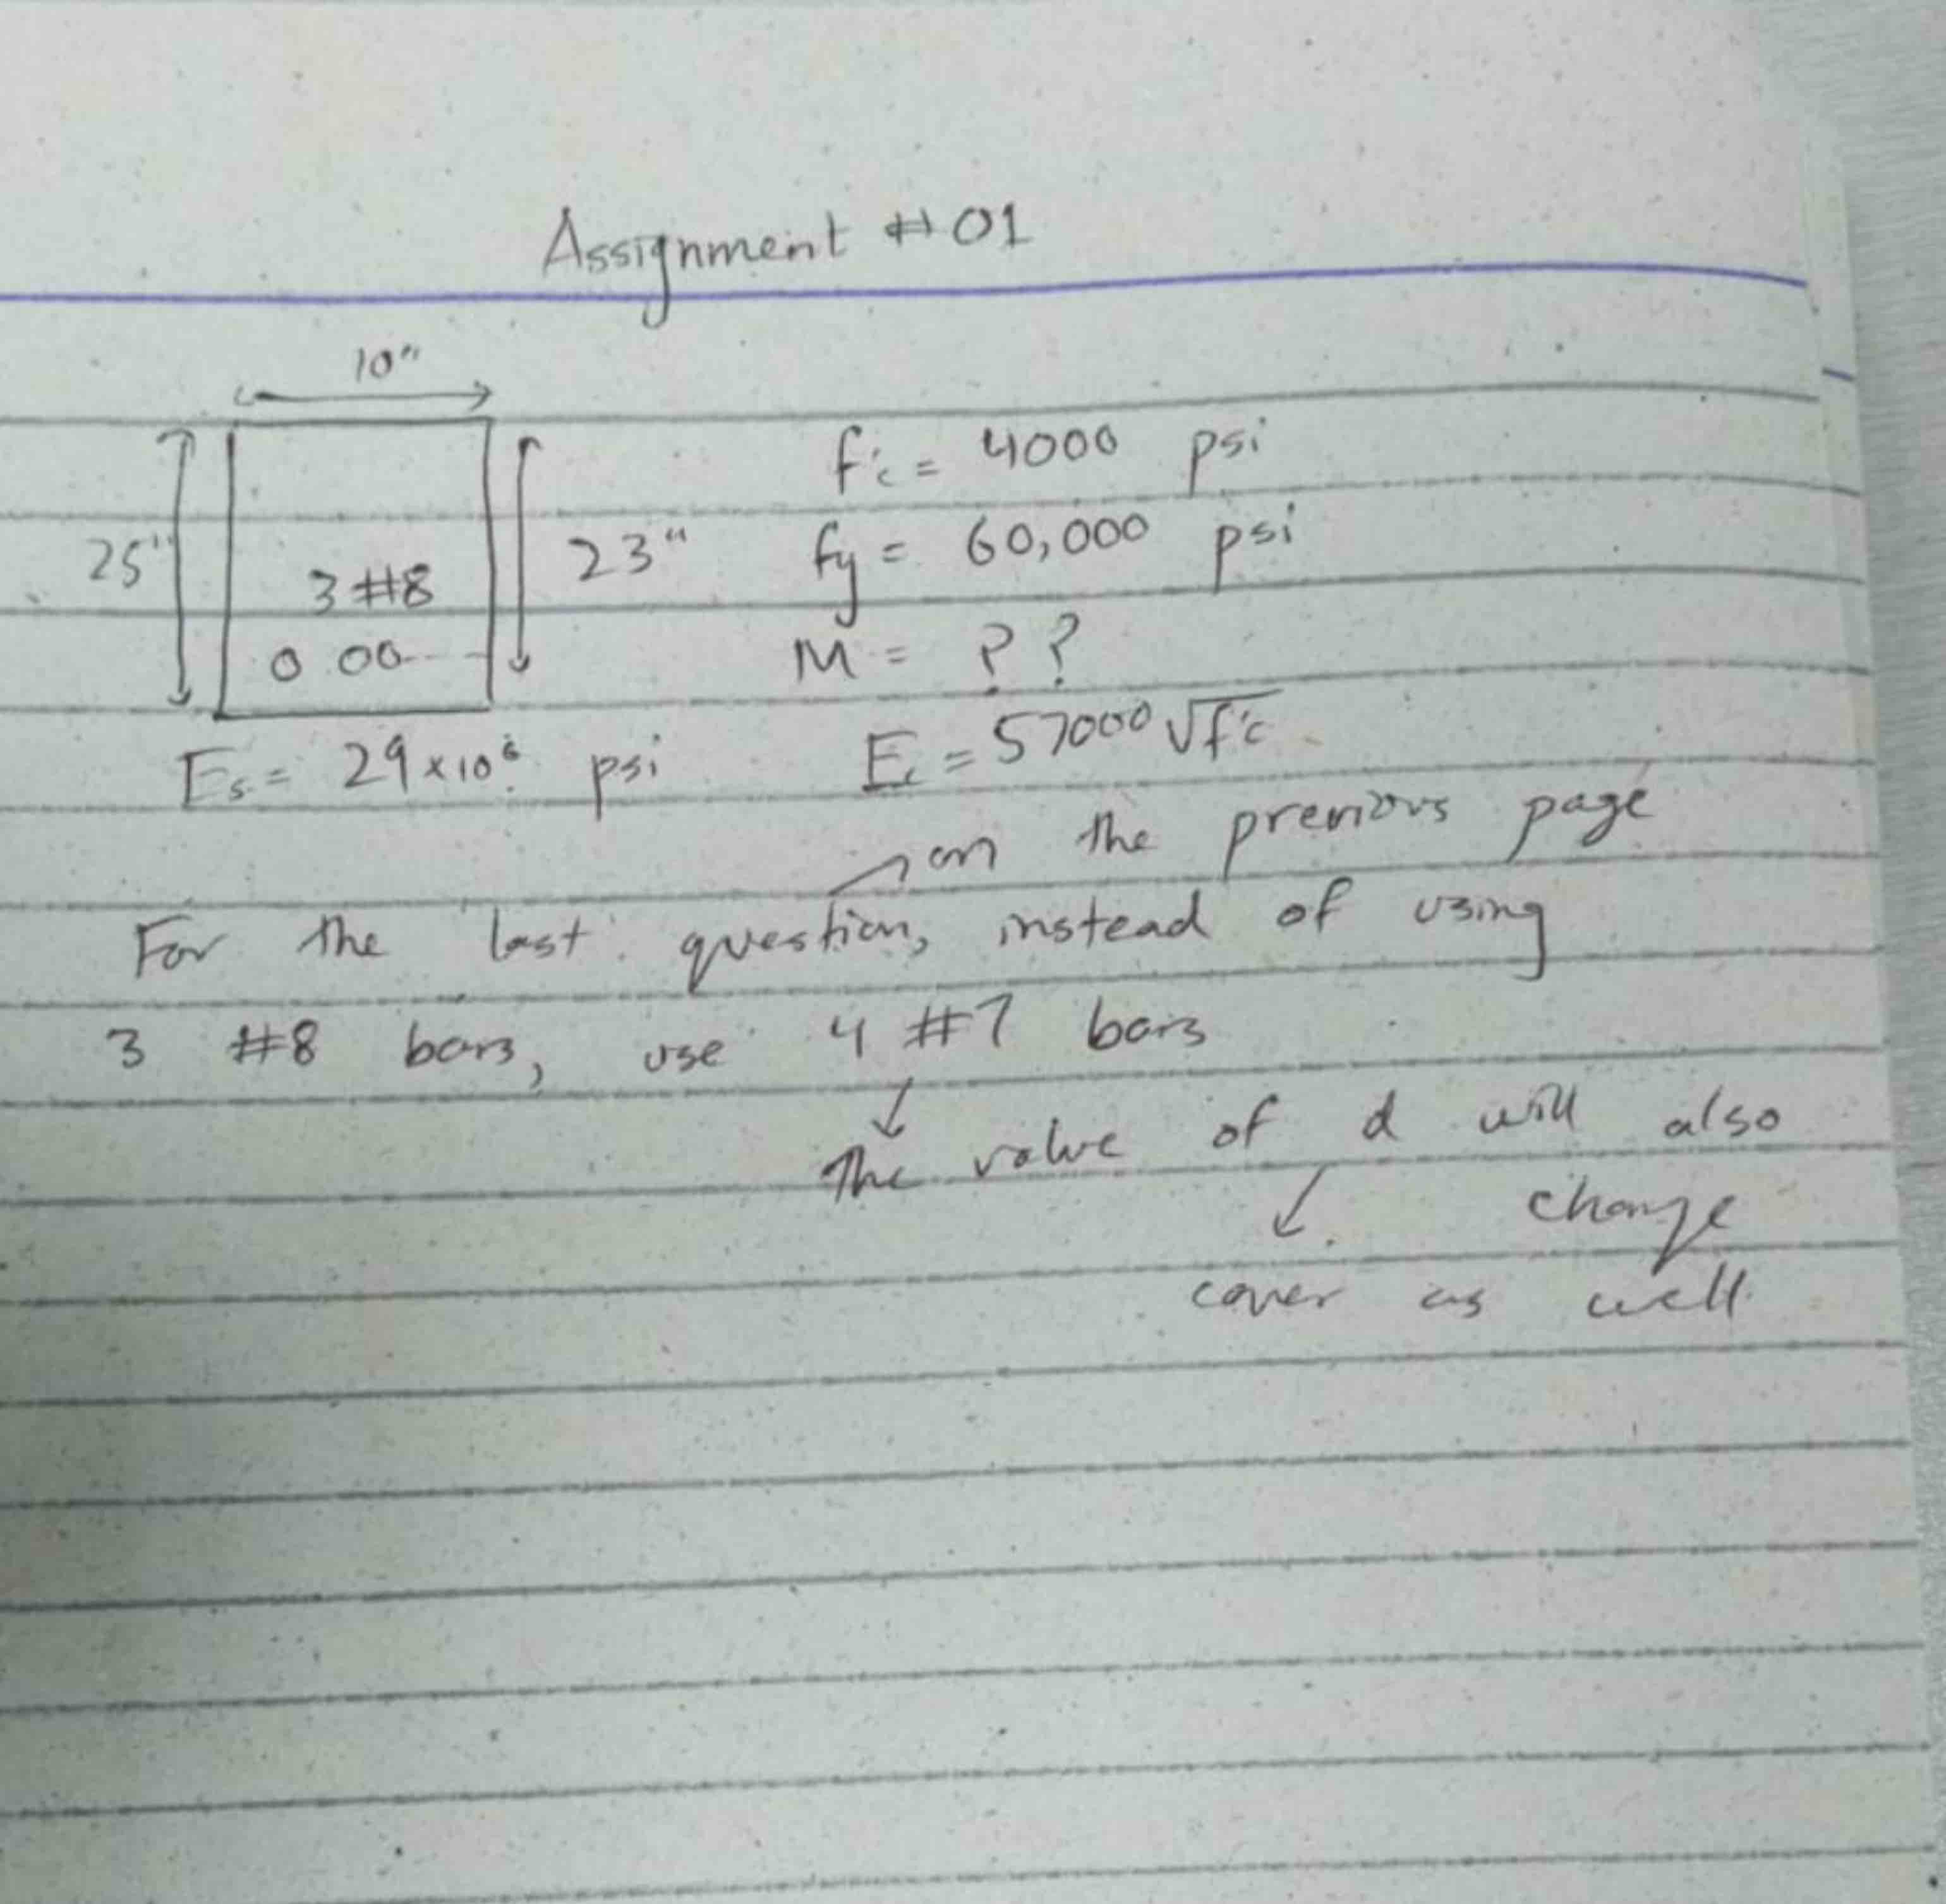 Assignment #01
10"
25"
3 #8
23"
f'c = 4000 psi
fy = 60,000 psi
M = ??
Es = 29×10⁶ psi
Ec = 57000√f'c
on the previous page
For the last question, instead of using
3 #8 bars, use 4 #7 bars
The value of d will also
change
cover as well